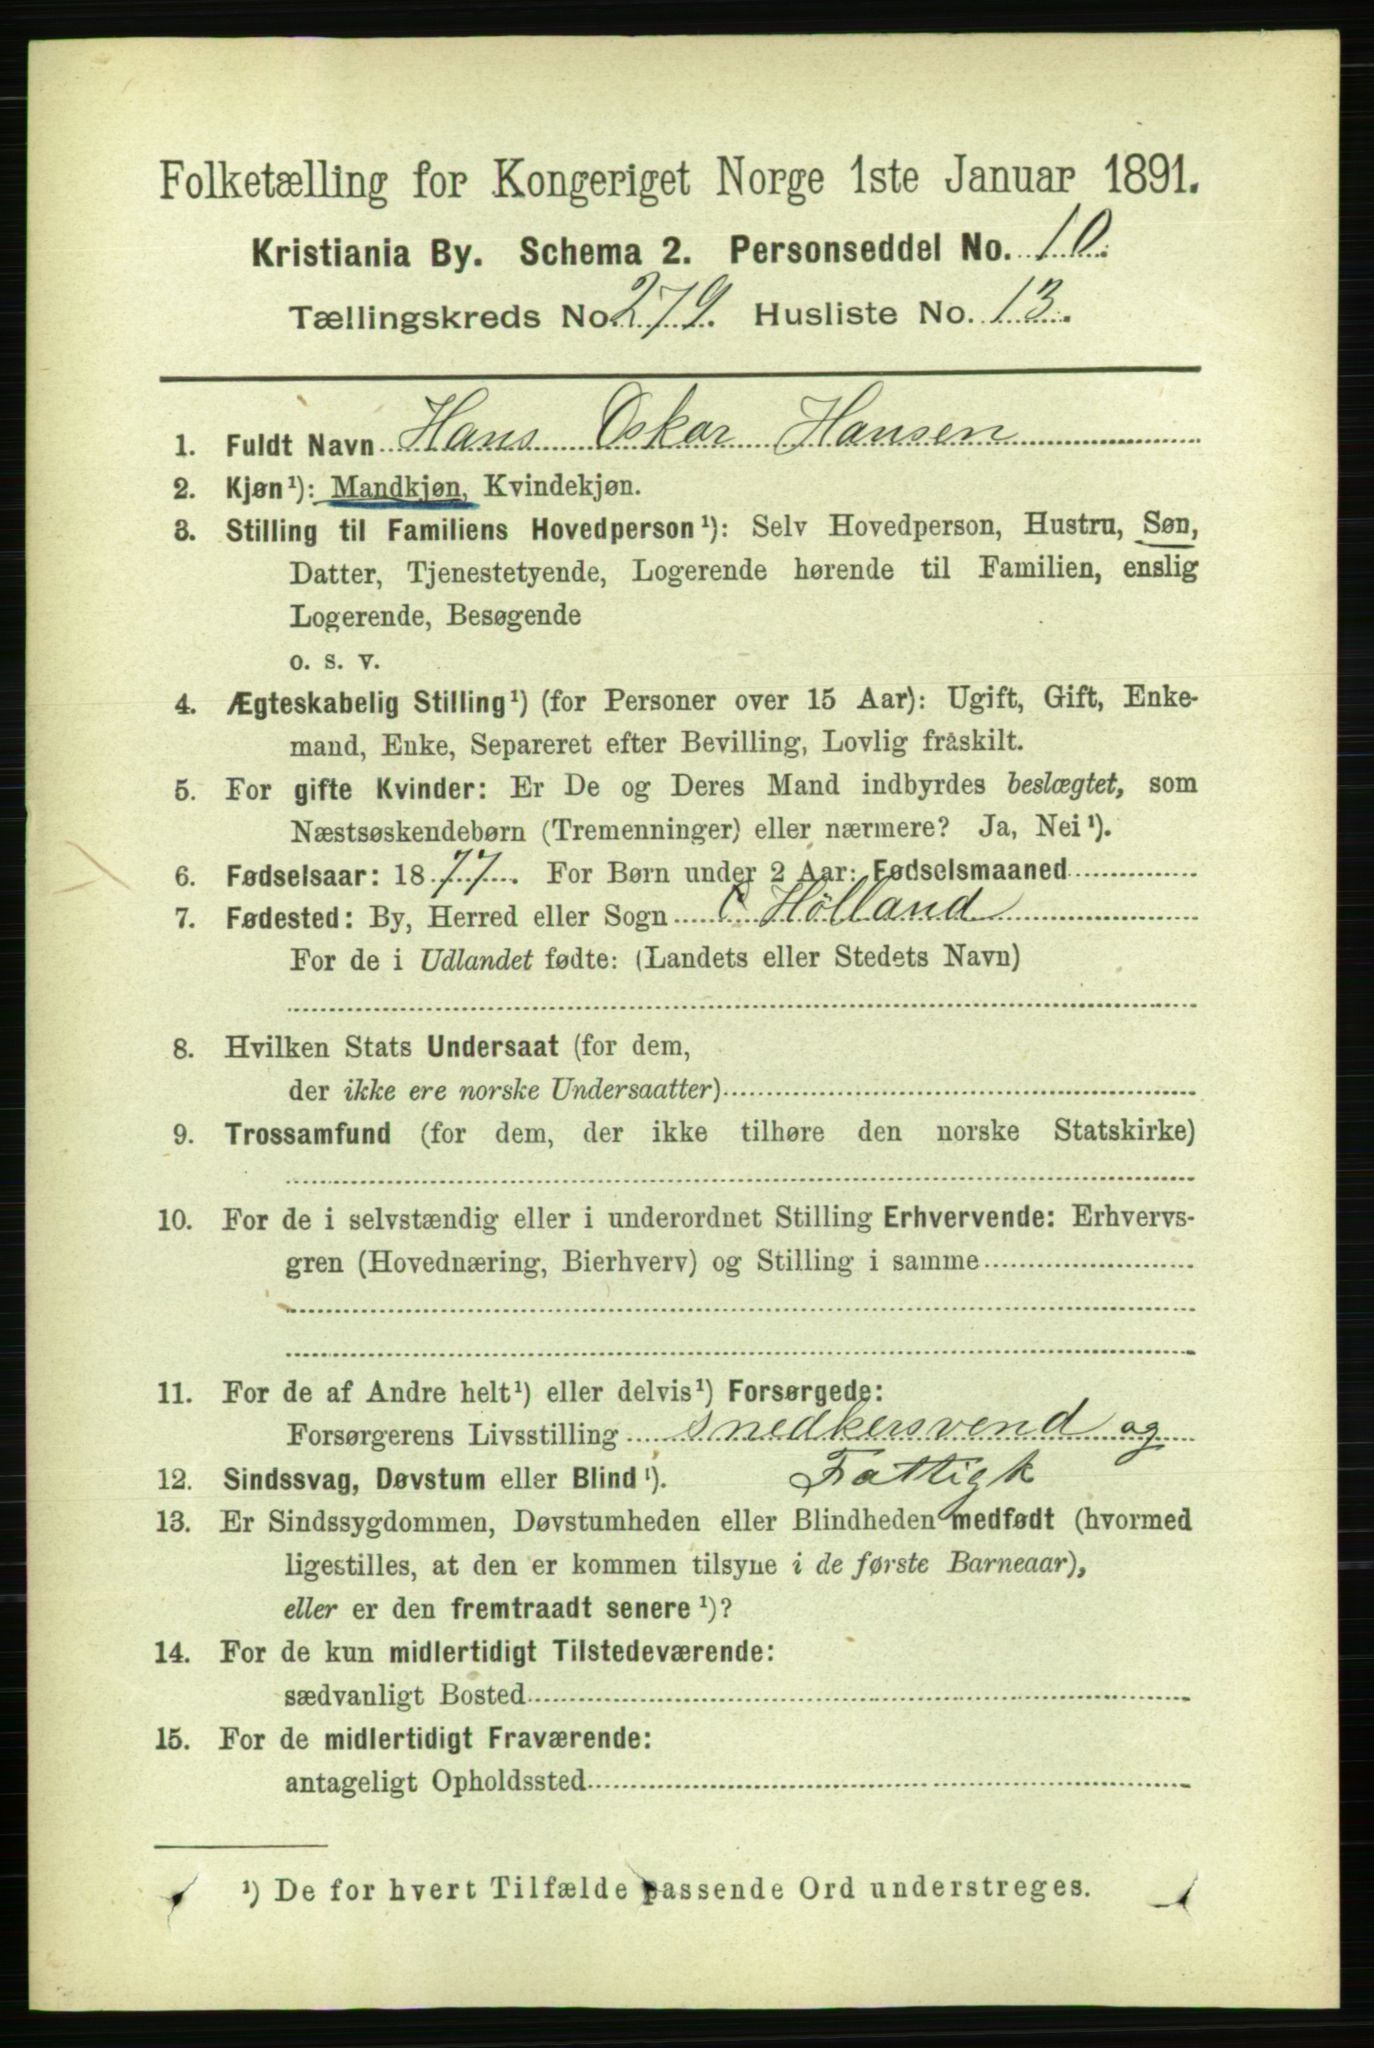 Folketælling for Kongeriget Norge 1ste Januar 1891.
Kristiania By. Schema 2. Personseddel No. 10.
Tællingskreds No. 279. Husliste No. 13.
1. Fuldt Navn Hans Oskar Hansen
2. Kjøn¹): Mandkjøn, Kvindekjøn.
3. Stilling til Familiens Hovedperson¹): Selv Hovedperson, Hustru, Søn,
Datter, Tjenestetyende, Logerende hørende til Familien, enslig
Logerende, Besøgende
o. s. v.
4. Ægteskabelig Stilling¹) (for Personer over 15 Aar): Ugift, Gift, Enke-
mand, Enke, Separeret efter Bevilling, Lovlig fraskilt.
5. For gifte Kvinder: Er De og Deres Mand indbyrdes beslægtet, som
Næstsøskendebørn (Tremenninger) eller nærmere? Ja, Nei¹).
6. Fødselsaar: 1877. For Børn under 2 Aar: Fødselsmaaned
7. Fødested: By, Herred eller Sogn Hölland
For de i Udlandet fødte: (Landets eller Stedets Navn)
8. Hvilken Stats Undersaat (for dem,
der ikke ere norske Undersaatter)
9. Trossamfund (for dem, der ikke tilhøre den norske Statskirke)
10. For de i selvstændig eller i underordnet Stilling Erhvervende: Erhvervs-
gren (Hovednæring, Bierhverv) og Stilling i samme
11. For de af Andre helt¹) eller delvis¹) Forsørgede:
Forsørgerens Livsstilling snedkersvend og
12. Sindssvag, Døvstum eller Blind¹). Fattigk
13. Er Sindssygdommen, Døvstumheden eller Blindheden medfødt (hvormed
ligestilles, at den er kommen tilsyne i de første Barneaar),
eller er den fremtraadt senere¹)?
14. For de kun midlertidigt Tilstedeværende:
sædvanligt Bosted
15. For de midlertidigt Fraværende:
antageligt Opholdssted
¹) De for hvert Tilfælde passende Ord understreges.